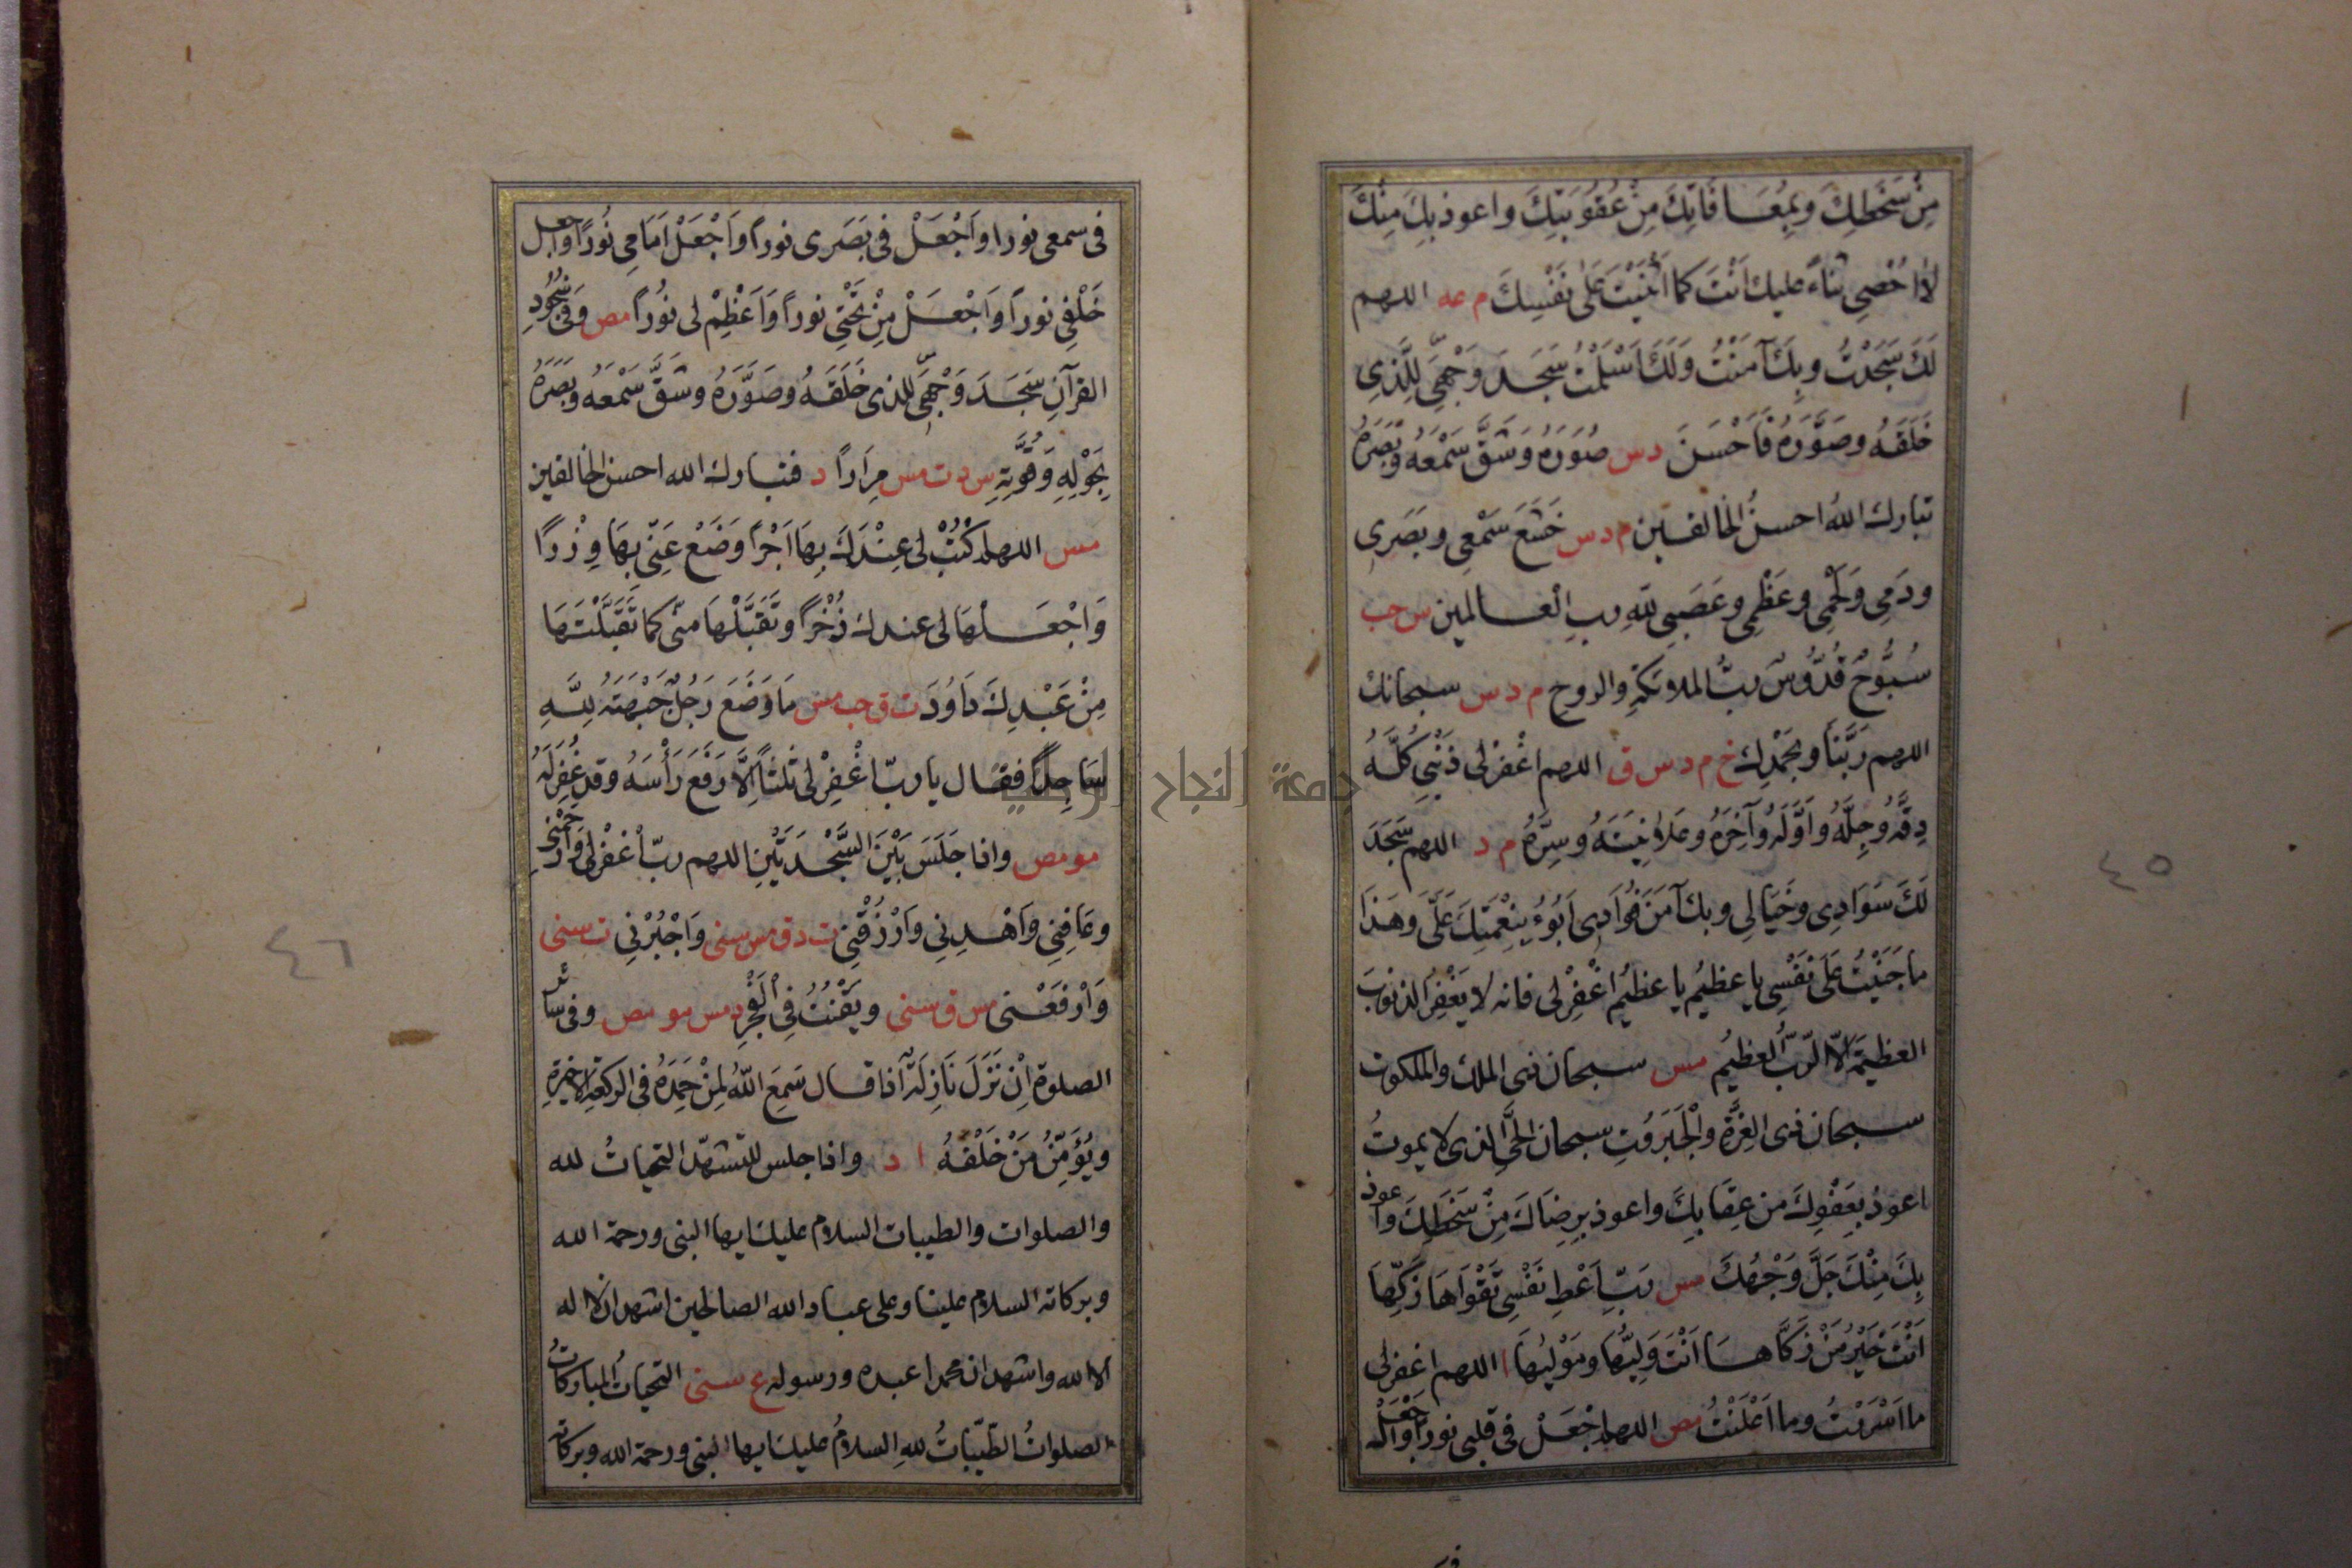 مِنْ سَخَطِكَ وَبِمُعَافَاتِكَ مِنْ عُقُوبَتِكَ واعوذ بِكَ مِنْكَ
لَا اُحْصِي ثَنَاءً عليك اَنْتَ كما اَثْنَيْتَ عَلَى نَفْسِكَ م عه اللهم
لَكَ سَجَدْتُ وبِكَ آمَنْتُ وَلَكَ اَسْلَمْتُ سَجَدَ وَجْهِيَ لِلَّذِي
خَلَقَهُ وصَوَّرَهُ فَاَحْسَنَ د س صُوَرَهُ وَشَقَّ سَمْعَهُ وَبَصَرَهُ
تبارك اللهُ احسنُ الخالقين م د س خَشَعَ سَمْعِي وبَصَرِي
ودَمِي وَلَحْمِي وعَظْمِي وعَصَبِي لِلّهِ ربِ الْعالمين س حب
سُبُّوحٌ قُدُّوسٌ ربُّ الملائكةِ والروحِ م د س سبحانك
اللهم رَبَّنَا وبِحَمْدِك خ م د س ق اللهم اغْفِرْ لِي ذَنْبِي كُلَّهُ
دِقَّهُ وَجِلَّهُ وَاَوَّلَهُ وآخِرَهُ وعَلانِيَتَهُ وسِرَّهُ م د اللهم سَجَدَ
لَكَ سَوَادِي وخَيَالِي وبك آمَنَ فُؤَادِي اَبُوءُ بِنِعْمَتِكَ عَلَيَّ وهَذَا
ما جَنَيْتُ عَلَى نَفْسِي يا عظيمُ يا عظيمُ اغْفِرْ لِي فانه لا يَغْفِرُ الذنوبَ
العظيمَةَ اِلّا الرَّبُّ العظيمُ مس سبحان ذي الملك والملكوت
سبحان ذي العِزَّةِ والْجَبَرُوتِ سبحان الحَيِّ الذي لا يموتُ
اعوذُ بِعَفْوِكَ من عِقَابِكَ واعوذ بِرِضَاكَ مِنْ سَخَطِكَ واَعوذ
بِكَ مِنْكَ جَلَّ وَجْهُكَ مس رَبِّ اَعْطِ نَفْسِي تَقْوَاهَا زَكِّهَا
اَنْتَ خَيْرُ مَنْ زَكَّاهَا اَنْتَ وَلِيُّهَا ومَوْلَيهَا ا اللهم اغفر لي
ما اَسْرَرْتُ وما اَعْلَنْتُ مص اللهم اجْعَلْ في قلبي نوراً وَاجْعَلْ
٤٥
في سمعي نورا واَجْعَلْ في بَصَرِي نوراً واَجْعَلْ اَمَامِي نُوراً واجعل
خَلْفِي نوراً وَاَجْعَلْ مِنْ تَحْتِي نوراً وَاَعْظِمْ لي نُوراً مص وَفي سُجُودِ
القرآنِ سَجَدَ وَجْهِيَ لِلذي خَلَقَهُ وصَوَّرَهُ وشَقَّ سَمْعَهُ وَبَصَرَهُ
بِحَوْلِهِ وَقُوَّتِهِ س د ت مس مِرَاراً د فتبارك الله احسن الخالقين
مس اللهم اكْتُبْ لي عِنْدَكَ بِهَا اَجْراً وَضَعْ عَنِّي بِهَا وِزْرًا
وَاجْعَلْهَا لي عندك ذُخْراً وتَقَبَّلْهَا مِنّي كما تَقَبَّلْتَهَا
مِنْ عَبْدِكَ دَاوُدَ ت ق حب مس مَا وَضَعَ رَجُلٌ جَبْهَتَهُ لِلّهِ
سَاجِداً فقال يا ربّ اغْفِرْ لي ثلثاً اِلَّا رَفَعَ رَأْسَهُ وقد غُفِرَ لَهُ
مو مص واذا جَلَسَ بَيْنَ السَّجْدَتَيْنِ اللهم ربّ اغْفِرْ لي وَارْحَمْنِي
وعَافِنِي واَهْدِنِي وَارْزُقْنِي ت د ق مس سنى وَاجْبُرْنِي ت سنى
وَاَرْفَعْنِي مس ق سنى ويَقْنُتُ فِي الْفَجْرِ د مس مو مص وفي سائر
الصلوة اِنْ نَزَلَ نَازِلَةٌ اذا قال سَمِعَ اللهُ لِمَنْ حَمِدَهُ في الركعةِ الاخيرةِ
ويُؤَمِّنُ مَنْ خَلْفَهُ ا د واذا جلس للتشهّد التحياتُ لله
والصلوات والطيبات السلام عليك ايها النبي ورحمة الله
وبركاته السلام علينا وعلى عباد الله الصالحين اشهد ان لا اله
الا الله واشهد ان محمدا عبده ورسوله ع سنى التحياتُ المباركاتُ
الصلواتُ الطّيّباتُ للهِ السلامُ عليك ايها النبي ورحمة الله وبركاته
٤٦
جامعة النجاح الوطنية